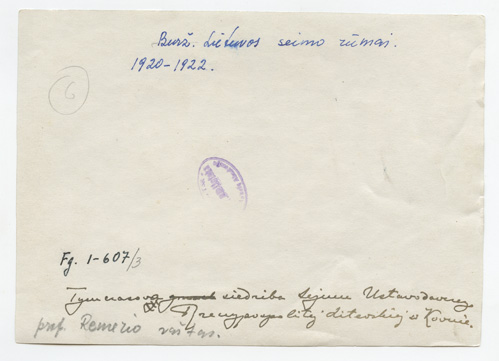 Burž. Lietuvos seimo rūmai.
1920-1922.
6
Fg. 1-607/3
Tymczasowa gmach siedziba Sejmu Ustawodawczego
Rzeczypospolitej Litewskiej w Kownie.
prof. Remerio raštas.